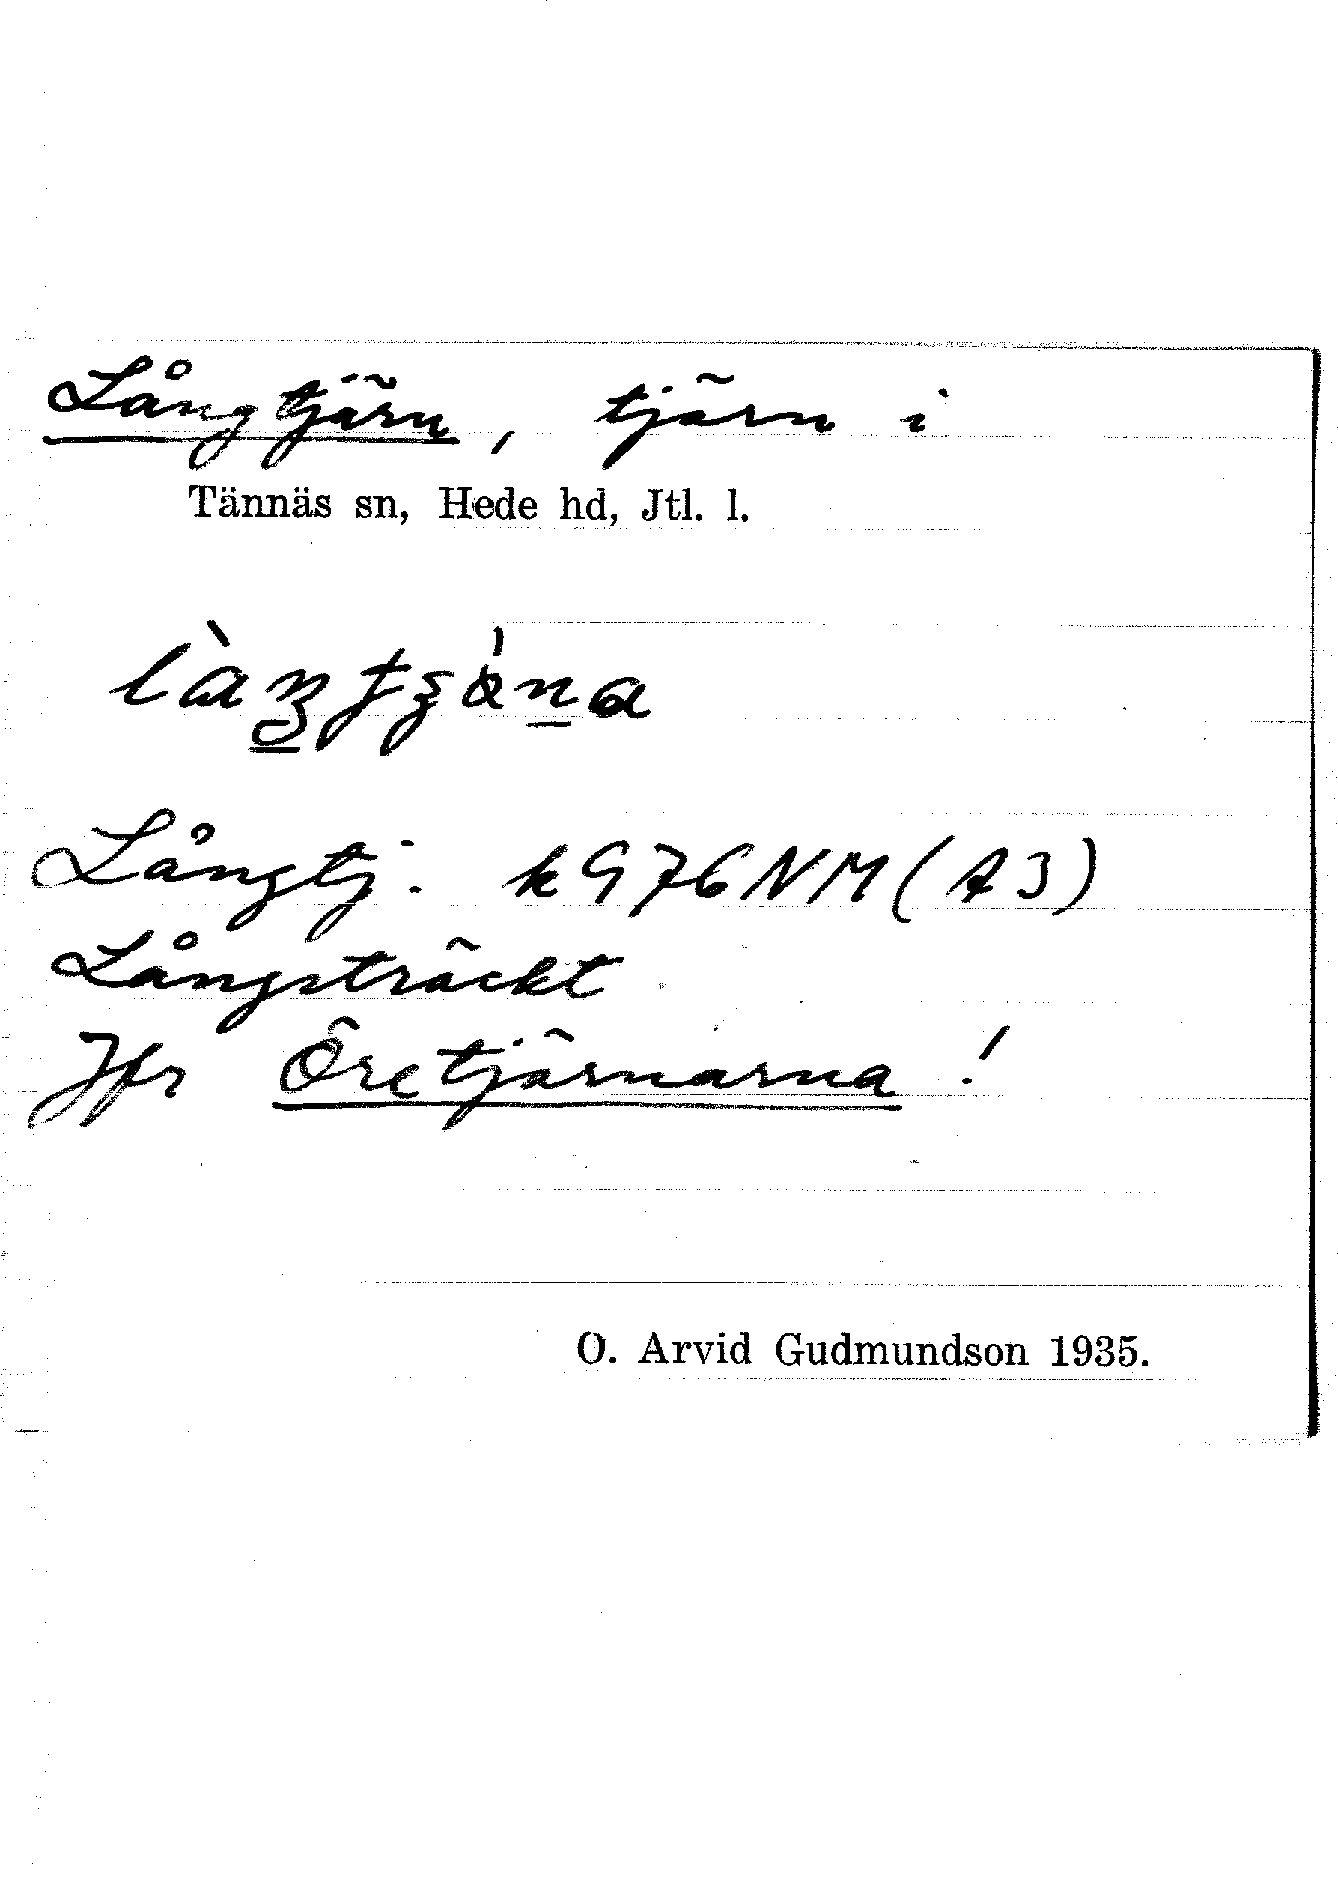 Långtjärn, tjärn i
Tännäs sn, Hede hd, Jtl. l.
Långtj. k G76NM (A3)
Långsträckt
Jfr Öretjärnarna!
O. Arvid Gudmundson 1935.